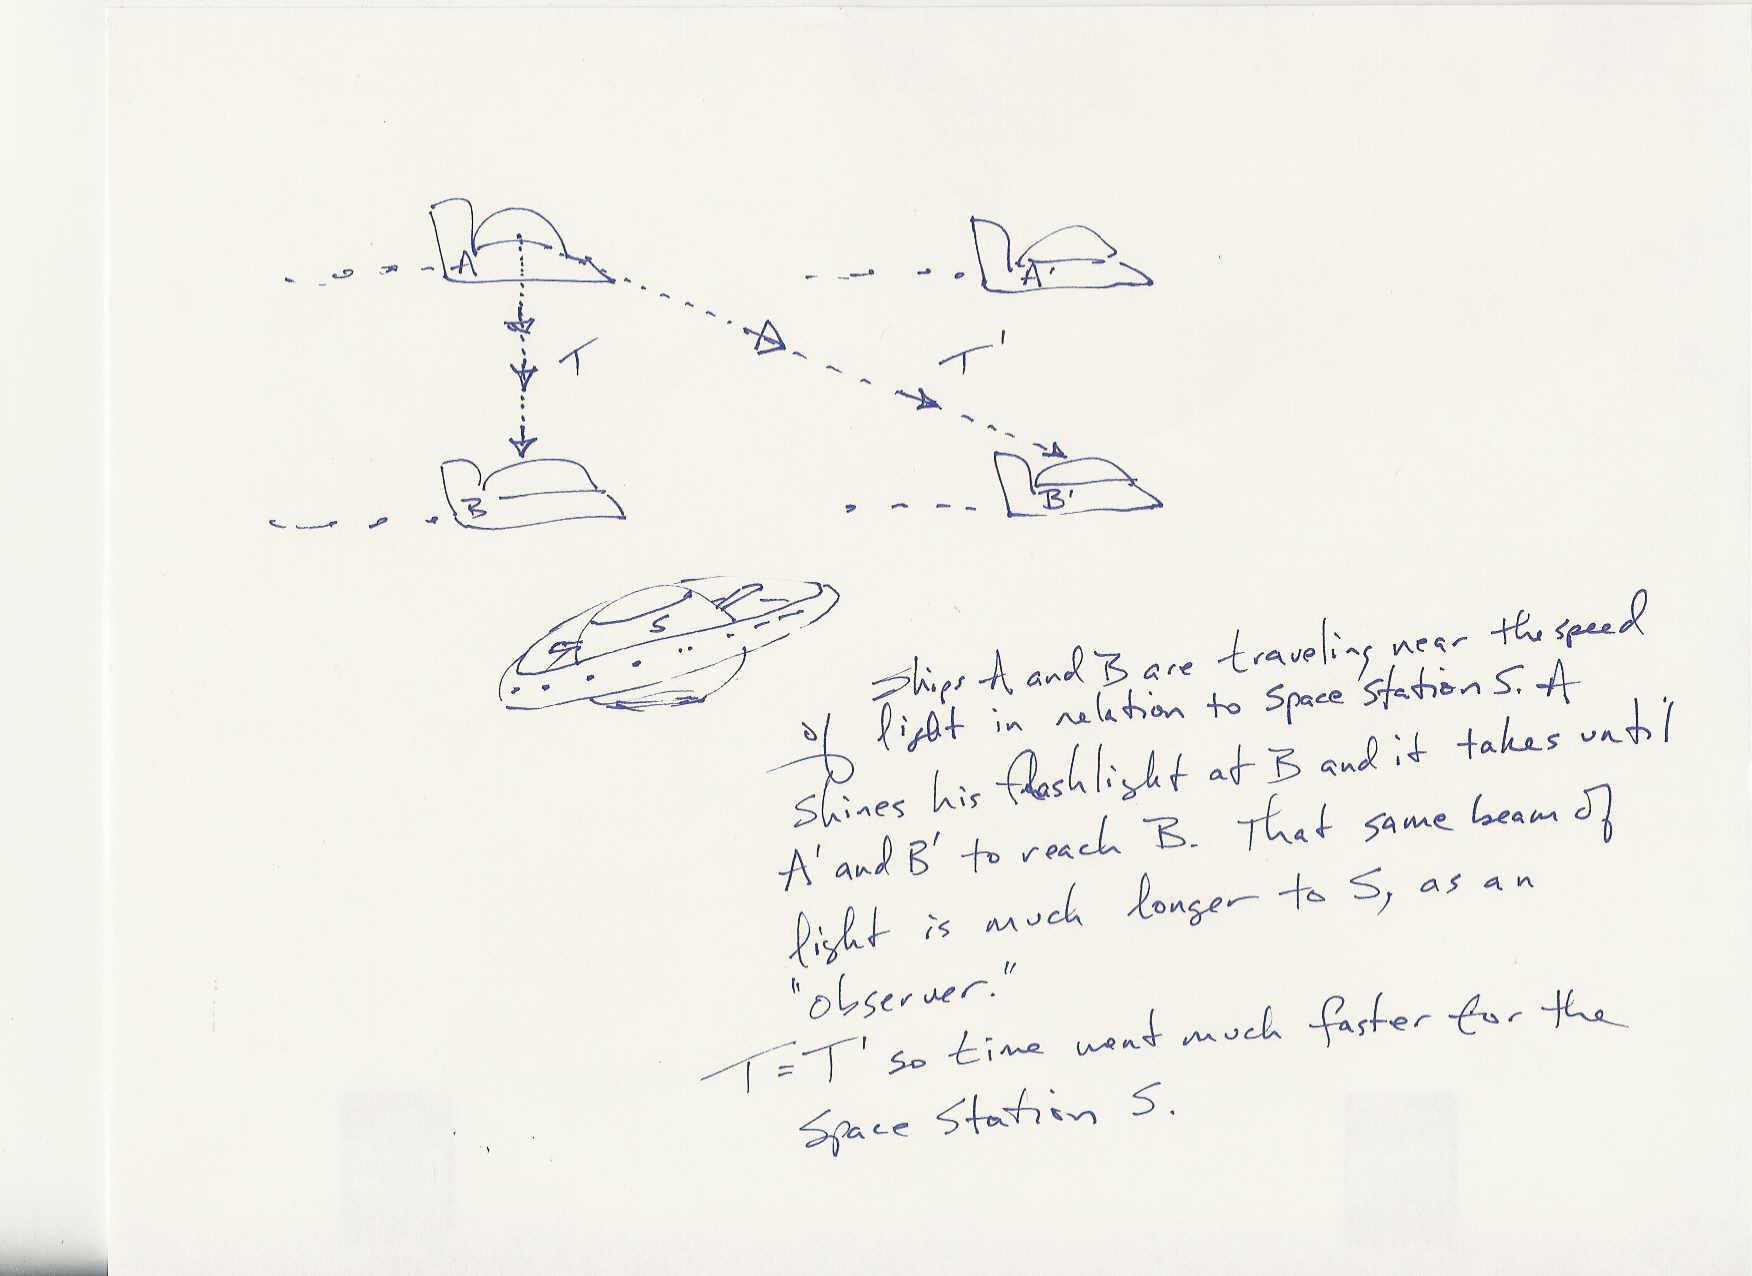 A
A'
T
T'
B
B'
S
Ships A and B are traveling near the speed
of light in relation to Space Station S. A
shines his flashlight at B and it takes until
A' and B' to reach B. That same beam of
light is much longer to S, as an
"observer."
T=T' so time went much faster for the
Space Station S.